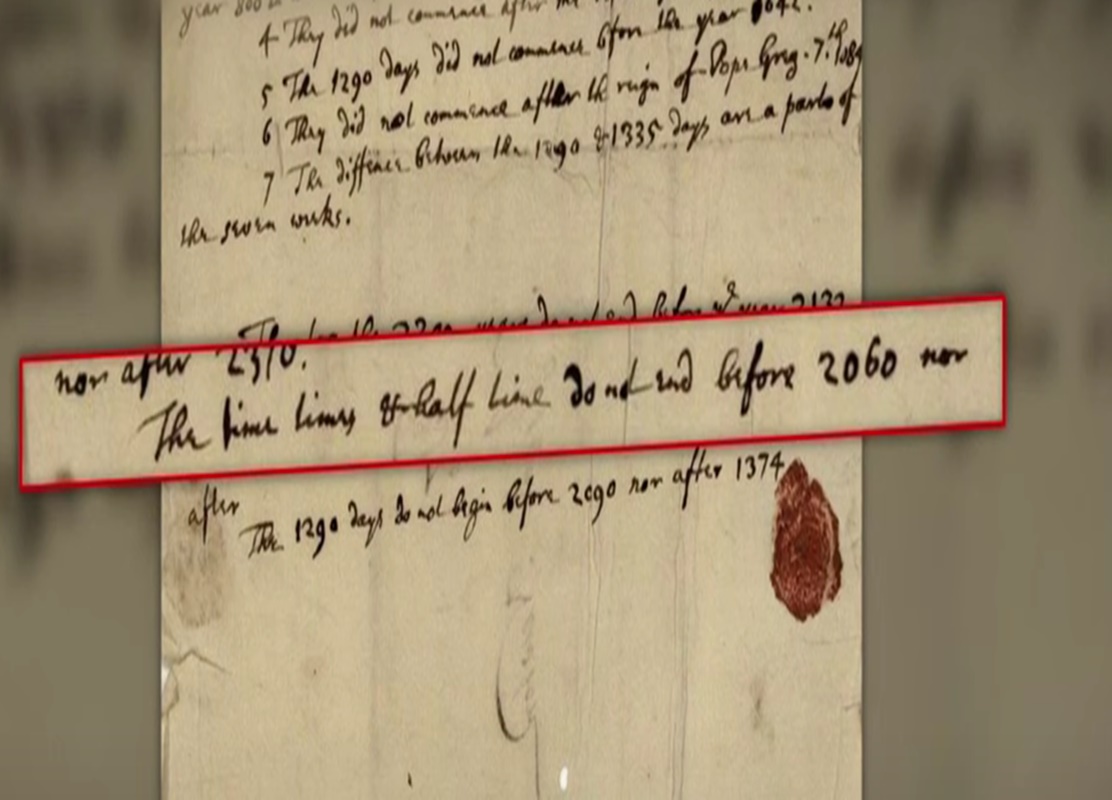 year 800
4 They did not commence after the
5 The 1290 days did not commence before the year 842.
6 They did not commence after the reign of Pope Greg. 7th. 1084
7 The diffence between the 1290 & 1335 days are a parts of
the seven weeks.
the 2300 years do not end before ye year 2132
nor after 2370.
The time times & half time do not end before 2060 nor
after
The 1290 days do not begin before 2090 nor after 1374